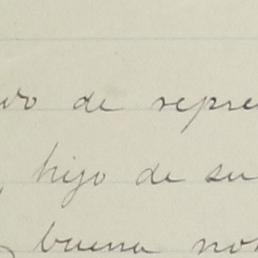 de repre
, hijo de su
buena not